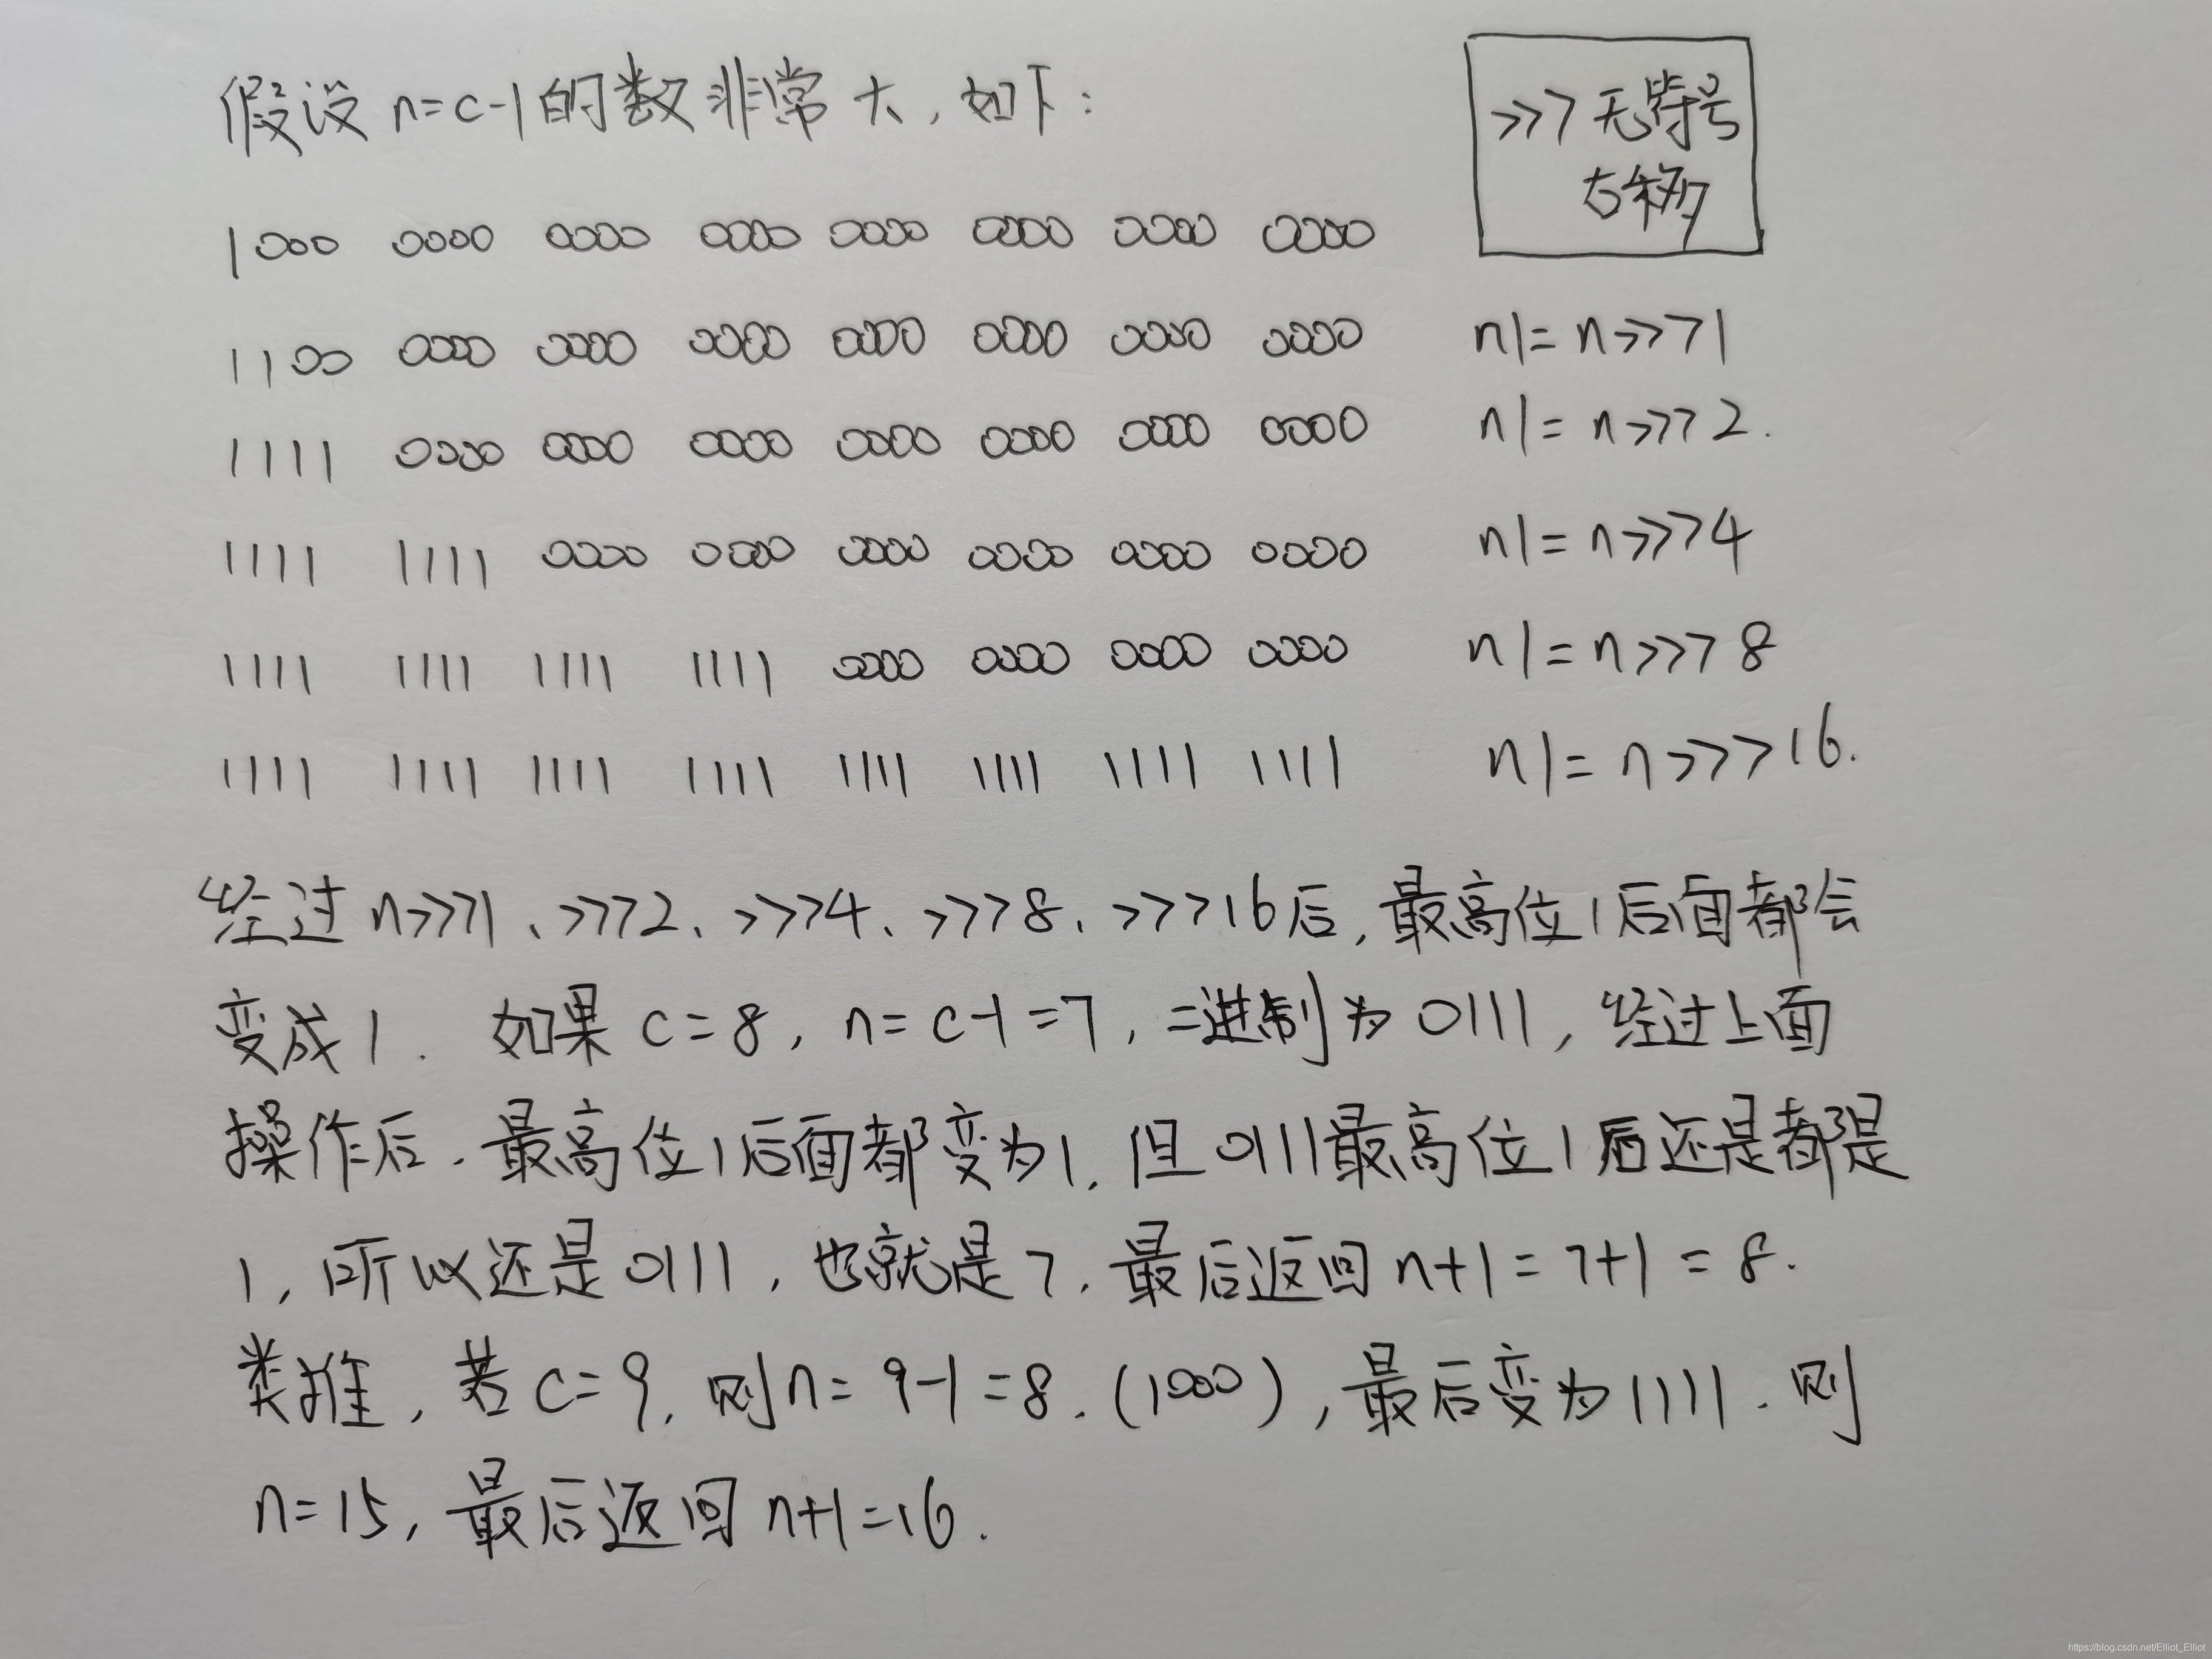 假设 n=c-1的数非常大,如下:
>>>无符号
右移
1000 0000 0000 0000 0000 0000 0000 0000
1100 0000 0000 0000 0000 0000 0000 0000 n|=n>>>1
1111 0000 0000 0000 0000 0000 0000 0000 n|=n>>>2.
1111 1111 0000 0000 0000 0000 0000 0000 n|=n>>>4
1111 1111 1111 1111 0000 0000 0000 0000 n|=n>>>8
1111 1111 1111 1111 1111 1111 1111 1111 n|=n>>>16.
经过n>>>1、>>>2、>>>4、>>>8、>>>16后,最高位1后面都会
变成1. 如果c=8,n=c-1=7,二进制为0111,经过上面
操作后.最高位1后面都变为1.但0111最高位1后还是都是
1,所以还是0111,也就是7.最后返回n+1=7+1=8.
类推,若c=9,则n=9-1=8.(1000),最后变为1111.则
n=15,最后返回n+1=16.
https://blog.csdn.net/Elliot_Elliot